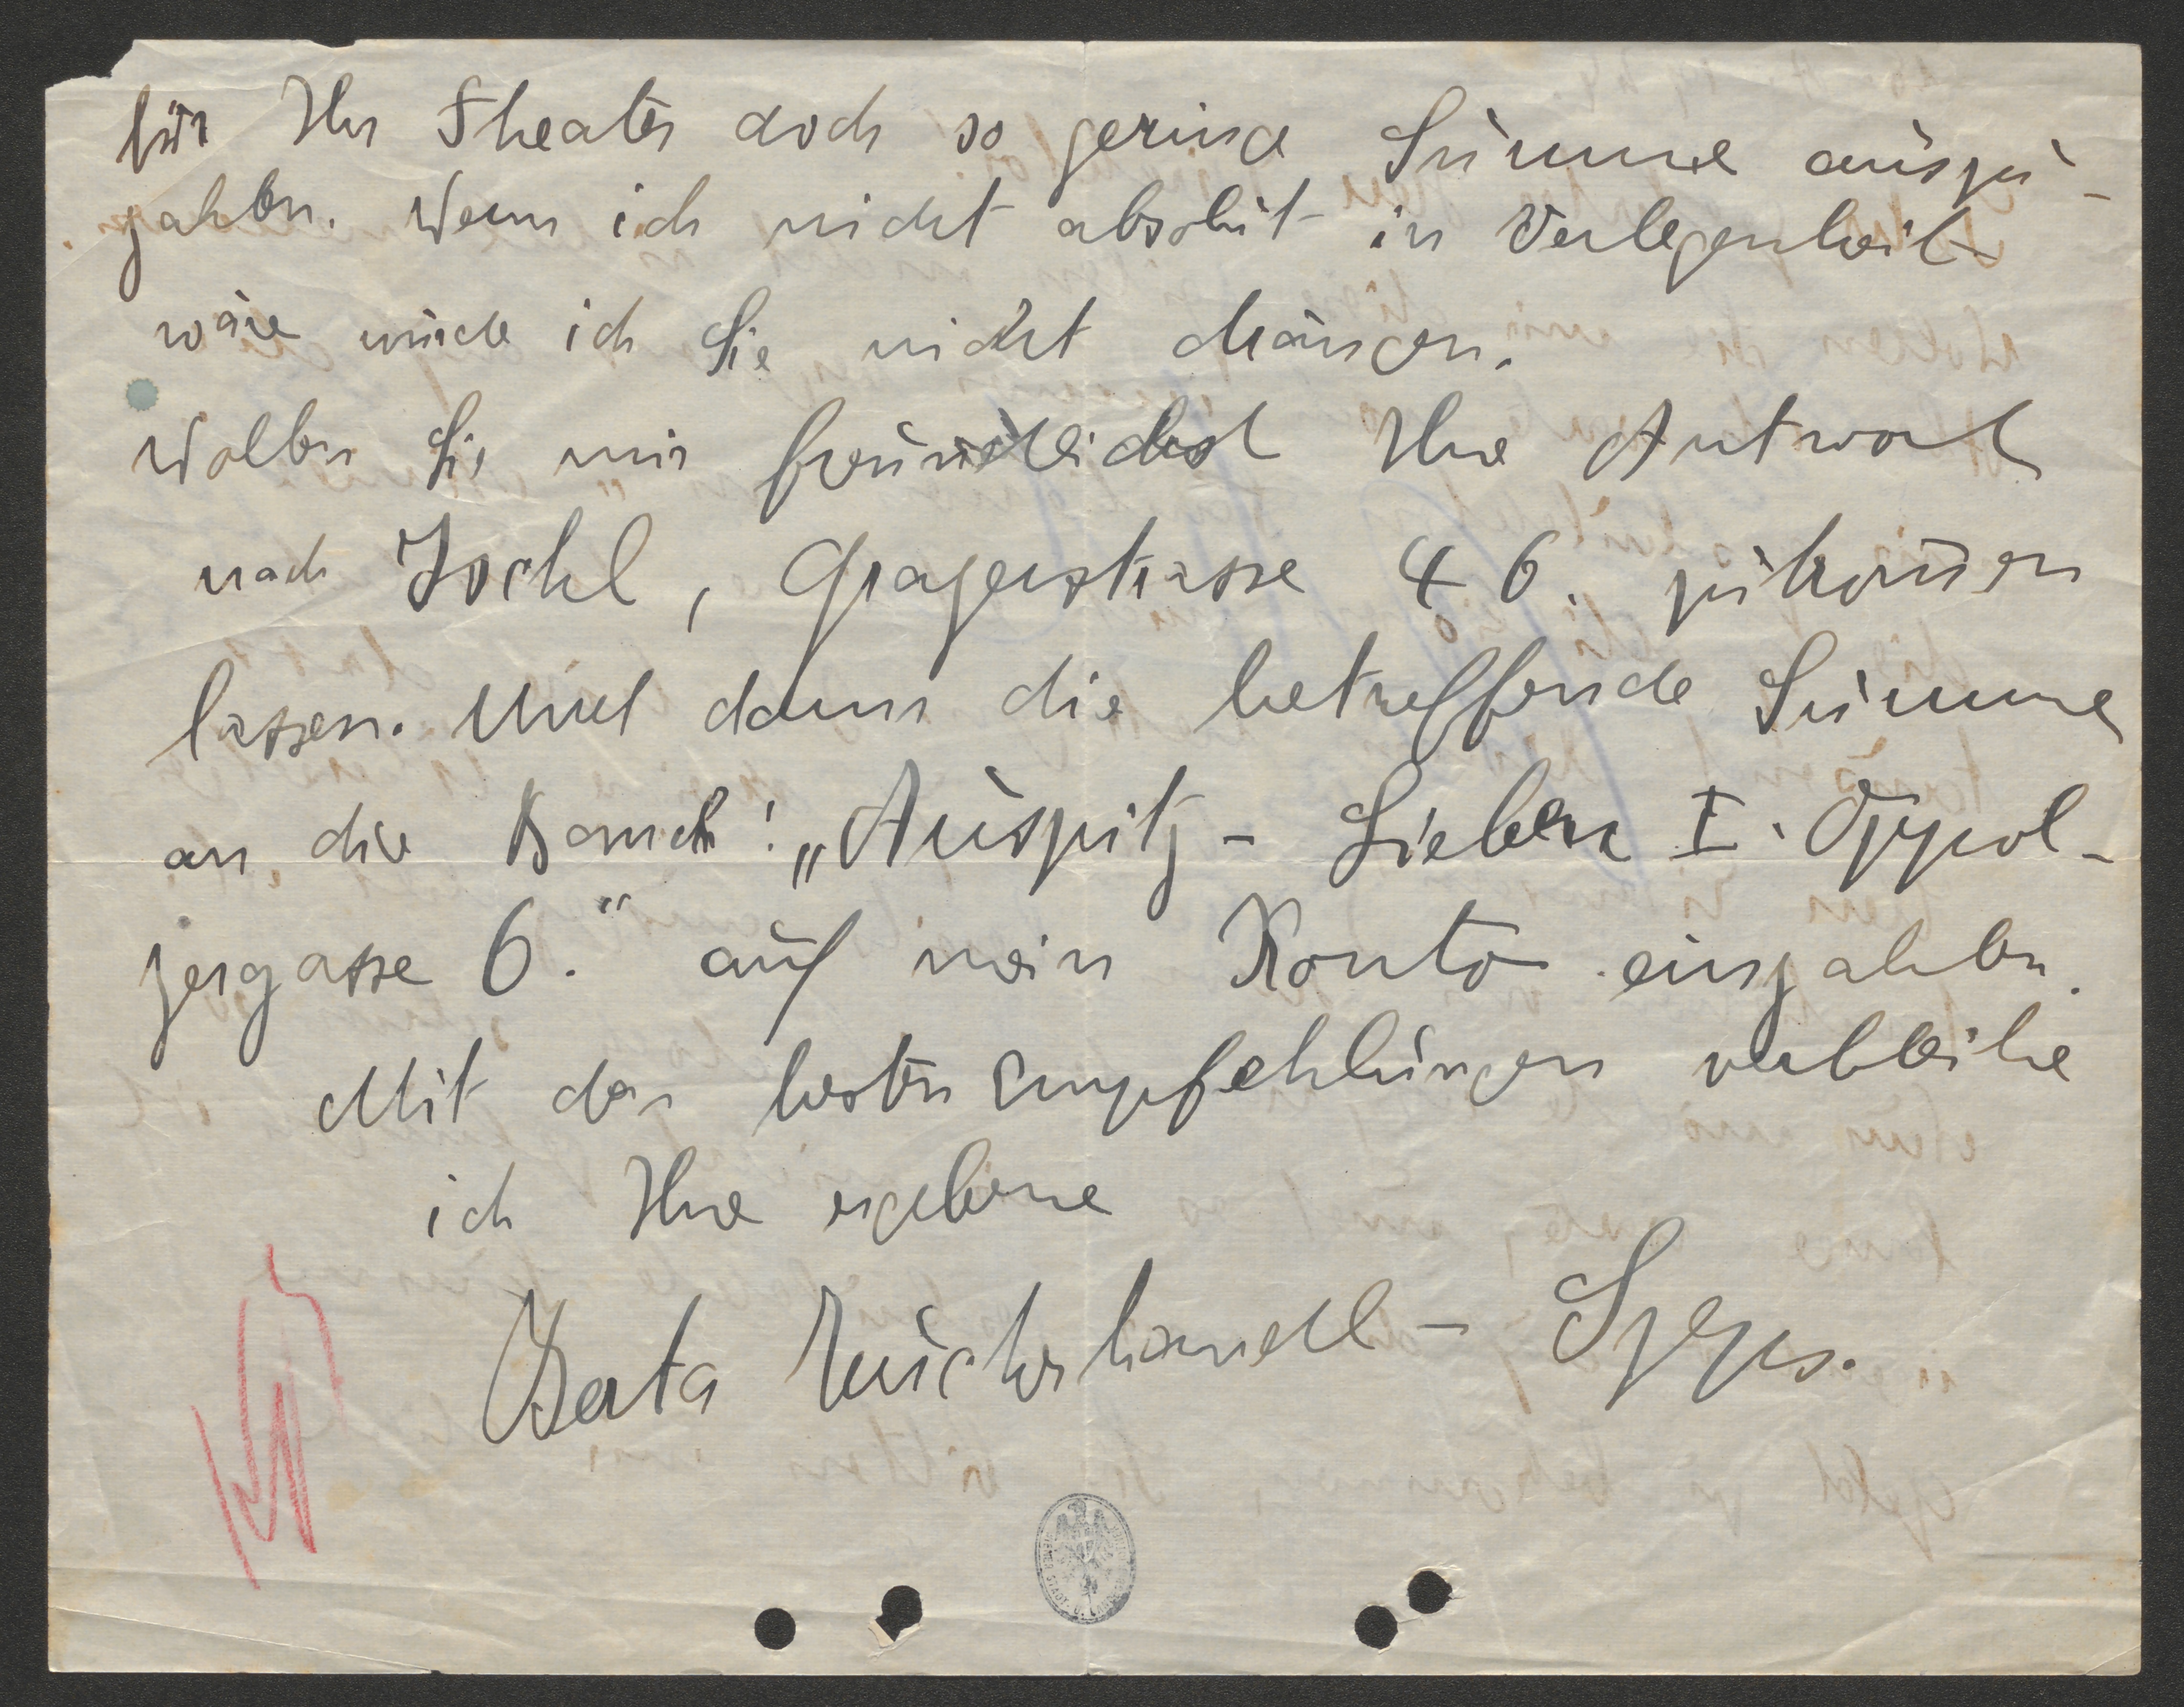 für Ihr Theater doch so geringe Summe auszu-
zahlen. Wenn ich nicht absolut in Verlegenheit
wäre würde ich Sie nicht drängen.
Wollen Sie mir freundlichst Ihre Antwort
nach Ischl, Grazerstrasse 46. zukom̄en
lassen. Und dann die betreffende Summe
an die Bank: „Auspitz - Lieben I. Oppol-
zergasse 6.“ auf mein Konto einzahlen.
Mit den besten Empfehlungen verbleibe
ich Ihre ergebene
Berta Zuckerkandl - Szeps.